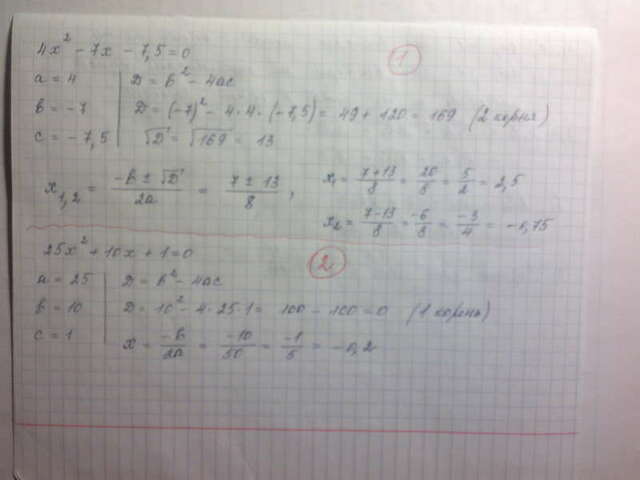 4x² - 7x - 7,5 = 0
1
a = 4
D = b² - 4ac
b = -7
D = (-7)² - 4·4·(-7,5) = 49 + 120 = 169 (2 корня)
c = -7,5
√D = √169 = 13
x₁,₂ = (-b ± √D)/2a = (7 ± 13)/8 ,
x₁ = (7+13)/8 = 20/8 = 5/2 = 2,5
x₂ = (7-13)/8 = -6/8 = -3/4 = -0,75
25x² + 10x + 1 = 0
2
a = 25
D = b² - 4ac
b = 10
D = 10² - 4·25·1 = 100 - 100 = 0 (1 корень)
c = 1
x = -b/2a = -10/50 = -1/5 = -0,2